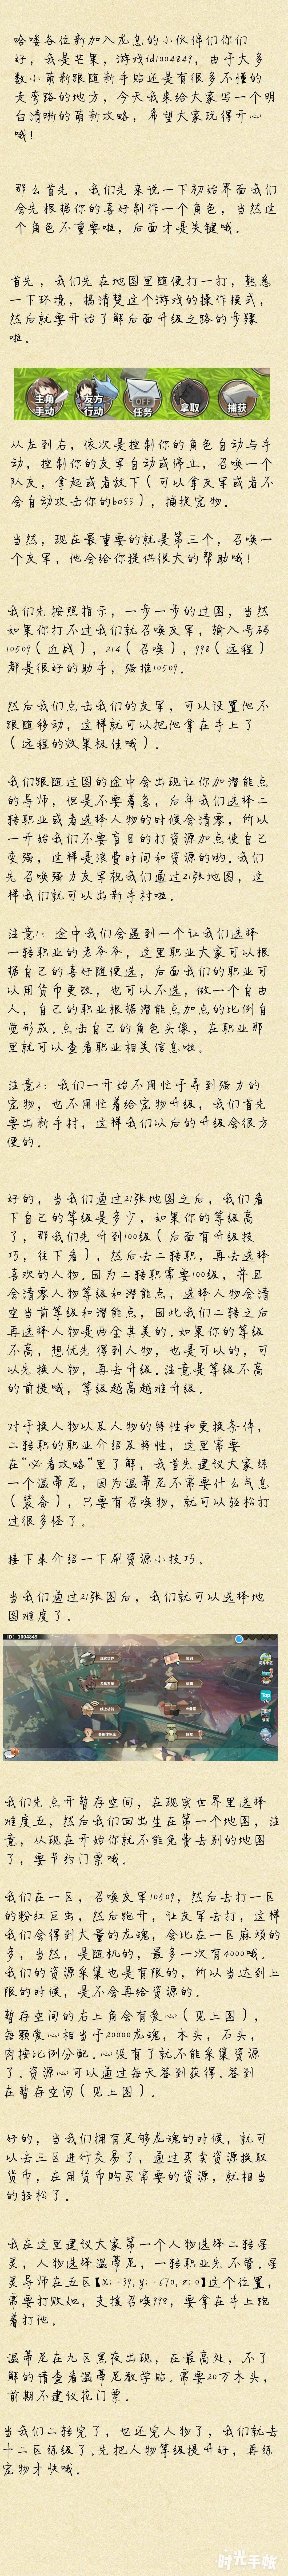 哈喽各位新加入龙息的小伙伴们你们
好，我是芒果，游戏id1004849，由于大多
数小萌新跟随新手贴还是有很多不懂的
走弯路的地方，今天我来给大家写一个明
白清晰的萌新攻略，希望大家玩得开心
哦！
那么首先，我们先来说一下初始界面我们
会先根据你的喜好制作一个角色，当然这
个角色不重要啦，后面才是关键哦。
首先，我们先在地图里随便打一打，熟悉
一下环境，搞清楚这个游戏的操作模式，
然后就要开始了解后面升级之路的步骤
啦。
主角
手动
友方
行动
OFF
任务
拿取
捕获
从左到右，依次是控制你的角色自动与手
动，控制你的友军自动或停止，召唤一个
队友，拿起或者放下（可以拿友军或者不
会自动攻击你的boss），捕捉宠物。
当然，现在最重要的就是第三个，召唤一
个友军，他会给你提供很大的帮助哦！
我们先按照指示，一步一步的过图，当然
如果你打不过我们就召唤友军，输入号码
10509（近战），214（召唤），998（远程）
都是很好的助手，强推10509。
然后我们点击我们的友军，可以设置他不
跟随移动，这样就可以把他拿在手上了
（远程的效果极佳哦）。
我们跟随过图的途中会出现让你加潜能点
的导师，但是不要着急，后年我们选择二
转职业或者选择人物的时候会清零，所以
一开始我们不要盲目的打资源加点使自己
变强，这样是浪费时间和资源的哟.我们
先召唤强力友军祝我们通过21张地图，这
样我们就可以出新手村啦。
注意1：途中我们会遇到一个让我们选择
一转职业的老爷爷，这里职业大家可以根
据自己的喜好随便选，后面我们的职业可
以用货币更改，也可以不选，做一个自由
人，自己的职业根据潜能点加点的比例自
觉形成.点击自己的角色头像，在职业那
里就可以查看职业相关信息啦。
注意2：我们一开始不用忙于寻到强力的
宠物，也不用忙着给宠物升级，我们首先
要出新手村，这样我们以后的升级会很方
便的。
好的，当我们通过21张地图之后，我们看
下自己的等级是多少，如果你的等级高
了，那我们先升到100级（后面有升级技
巧，往下看），然后去二转职，再去选择
喜欢的人物.因为二转职需要100级，并且
会清零人物等级和潜能点，选择人物会清
空当前等级和潜能点，因此我们二转之后
再选择人物是两全其美的.如果你的等级
不高，想优先得到人物，也是可以的，可
以先换人物，再去升级.注意是等级不高
的前提哦，等级越高越难升级。
对于换人物以及人物的特性和更换条件，
二转职的职业介绍及特性，这里需要
在“必看攻略”里了解，我首先建议大家练
一个温蒂尼，因为温蒂尼不需要什么气息
（装备），只要有召唤物，就可以轻松打
过很多怪了。
接下来介绍一下刷资源小技巧。
当我们通过21张图后，我们就可以选择地
图难度了。
ID: 1004849
我们先点开暂存空间，在现实世界里选择
难度五，然后我们回出生在第一个地图，注
意，从现在开始你就不能免费去别的地图
了，要节约门票哦。
我们在一区，召唤友军10509，然后去打一区
的粉红巨虫，然后跑开，让友军去打，这样
我们会得到大量的龙魂，会比在一区麻烦的
多，当然，是随机的，最多一次有4000哦.
我们的资源采集也是有限的，所以当达到上
限的时候，是不会再给资源的。
暂存空间的右上角会有爱心（见上图），
每颗爱心相当于20000龙魂，木头，石头，
肉按比例分配.心没有了就不能采集资源
了.资源心可以通过每天签到获得.签到
在暂存空间（见上图）.
好的，当我们拥有足够龙魂的时候，就可
以去三区进行交易了，通过买卖资源换取
货币，在用货币购买需要的资源，就相当
的轻松了.
我在这里建议大家第一个人物选择二转星
灵，人物选择温蒂尼，一转职业先不管.星
灵导师在五区【x：-39，y：-670，z：0】这个位置，
需要打败她，支援召唤998，要拿在手上跑
着打他.
温蒂尼在九区黑夜出现，在最高处，不了
解的请查看温蒂尼教学贴.需要20万木头，
前期不建议花门票.
当我们二转完了，也还完人物了，我们就去
十二区练级了.先把人物等级提升好，再练
宠物才快哦.
时光手帐